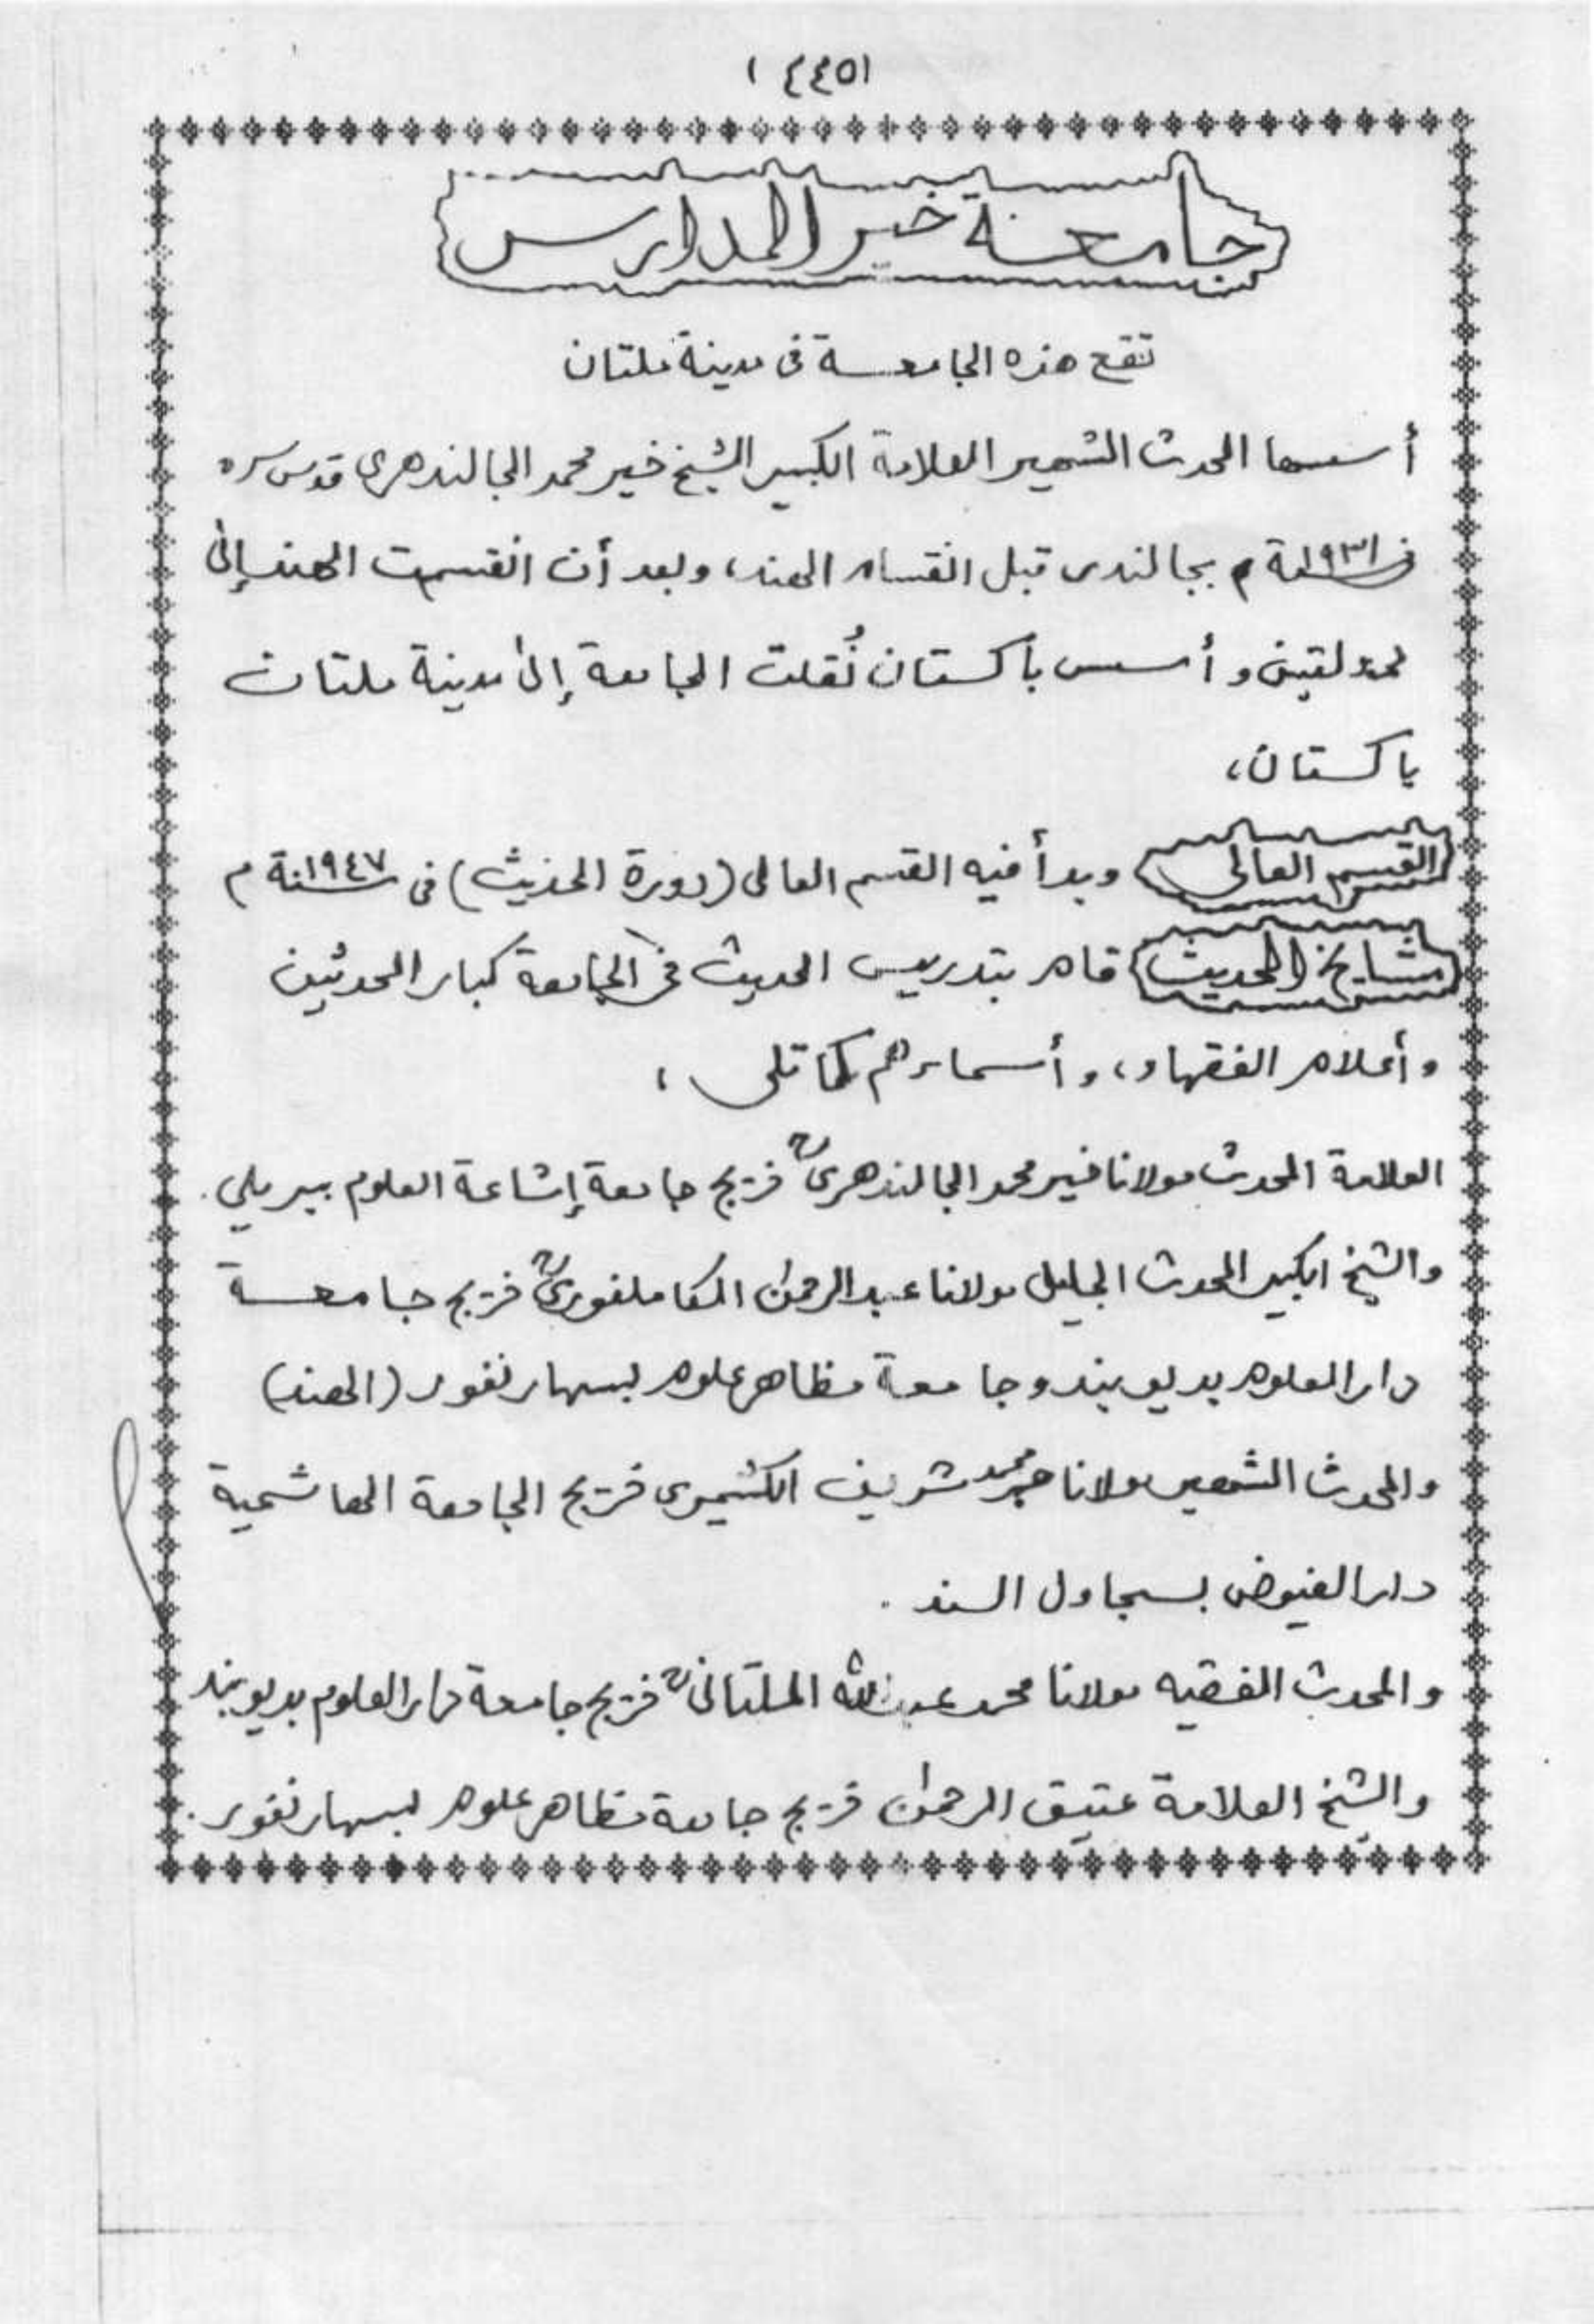 (٤٤٥)
جامعة خير المدارس
تقع هذه الجامعة فى مدينة ملتان
أسسها المحدث الشهير العلامة الكبير الشيخ خير محمد الجالندهرى قدس سره
فى سنة ١٩٣١م بجالندى قبل انقسام الهند، وبعد أن انقسمت الهند إلى
دولتين وأسس باكستان نُقلت الجامعة إلى مدينة ملتان
باكستان،
القسم العالى وبدأ فيه القسم العالى (دورة الحديث) فى سنة ١٩٤٧م
مشايخ الحديث قام بتدريس الحديث فى الجامعة كبار المحدثين
وأعلام الفقهاء، وأسماءهم كما تلى،
العلامة المحدث مولانا خير محمد الجالندهرىؒ خريج جامعة إشاعة العلوم ببريلي.
والشيخ الكبير المحدث الجليل مولانا عبد الرحمٰن الكاملفورىؒ خريج جامعة
دار العلوم بديوبند وجامعة مظاهر علوم بسهارنفور (الهند)
والمحدث الشهير مولانا محمد شريف الكشميرى خريج الجامعة الهاشمية
دار الفيوض بسجاول السند.
والمحدث الفقيه مولانا محمد عبد الله الملتانىؒ خريج جامعة دار العلوم بديوبند
والشيخ العلامة عتيق الرحمٰن خريج جامعة مظاهر علوم بسهارنفور.